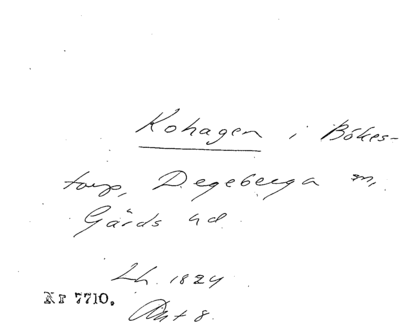 Kohagen i Bökes-
torp, Degeberga sn,
Gärds hd
Lh. 1824
Nr 7710.
Akt 8.